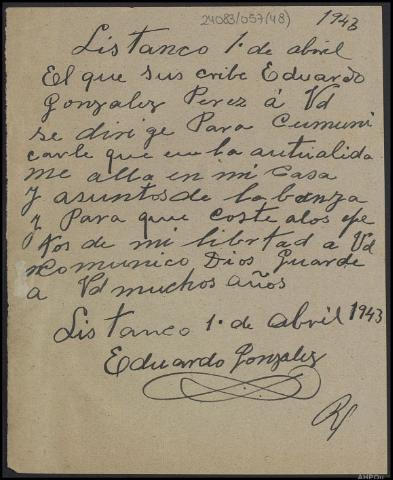 24083/057(48)
1943
Listanco 1· de abril
El que sus cribe Eduardo
Gonzalez Perez á Vd
se dirige Para Cumuni
carle que en la autualida
me alla en mi Casa
y asuntos de labanza
y Para que coste alos efe
ktos de mi libertad a Vd
comunico Dios Guarde
a Vd muchos años
Listanco 1· de abril 1943
Eduardo Gonzalez
AHPOu